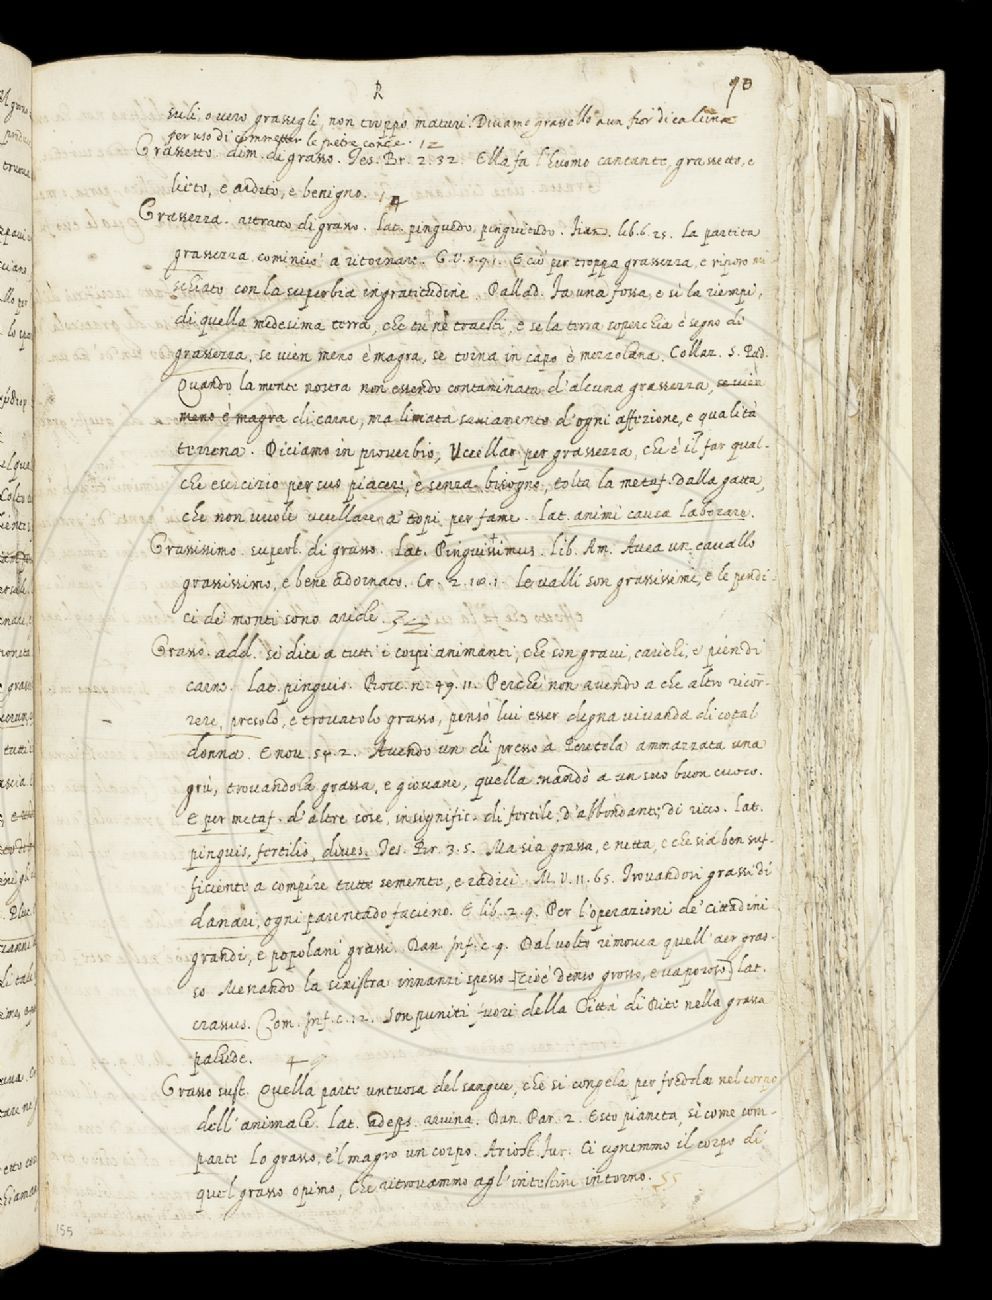 R
90
suli, o vero grassegli, non troppo maturi. Diciamo grassello a un fior di calcina
per uso di commetter le pietre conce. 12
Grassetto. dim. di grasso. Tes. Br. 2. 32. Ella fa l'huomo cantante, grassetto, e
lieto, e ardito, e benigno.
Grassezza. astratto di grasso. Lat. pinguedo, pinguitudo. lib. 6. 25. La partita
grassezza cominciò a ritornare. G. V. Ecciò per troppa grassezza, e riposo mi-
schiato con la superbia ingratitudine. Pallad. Fa una fossa, e sì la riempi,
di quella medesima terra, che tu ne traesti, e se la terra soperchia è segno di
grassezza, se vien meno è magra, se torna in capo è mezzolana. Collaz. S. Pad.
Quando la mente nostra non essendo contaminata d'alcuna grassezza, se vien
meno è magra di carne, ma limata saviamente d'ogni affezione, e qualità
terrena. Diciamo in proverbio, Uccellar per grassezza, che è il far qual-
che esercizio per suo piacere, e senza bisogno, tolta la metaf. dalla gatta,
che non vuole uccellare a topi per fame. Lat. animi causa laborare.
Grassissimo. superl. di grasso. Lat. Pinguissimus. Lib. Am. Avea un cavallo
grassissimo, e bene adornato. Cr. 2. Le valli son grassissime, e le pendi-
ci de' monti sono aride.
Grasso. add. si dice a tutti i corpi animanti, che son gravi, carichi, e pien di
carne. Lat. pinguis. Bocc. n. 49. 11. Perchè non avendo a che altro ricor-
rere, presolo, e trovatolo grasso, pensò lui esser degna vivanda di cotal
donna. E nov. 54. 2. Avendo un dì presso à Peretola ammazzata una
grù, trovandola grassa, e giovane, quella mandò a un suo buon cuoco.
E per metaf. d'altre cose, in signific. di fertile, d'abbondante, di ricco. Lat.
pinguis, fertilis, dives. Tes. Br. 3. 5. Ma sia grassa, e netta, e che sia ben suf-
ficiente a compíre tutte semente, e radici. M. V. 11. 65. Trovandosi grassi di
danari, ogni parentado facieno. E lib. 2. 9. Per l'operazioni de' Cittadini
grandi, e popolani grassi. Dan. Inf. c. 9. Dal volto rimovea quell'aer gras-
so Menando la sinistra innanzi spesso [cioè denso grosso, e vaporoso] Lat.
crassus. Com. Inf. c. 12. Son puniti fuori della Città di Dite nella grassa
palude.
Grasso sust. Quella parte untuosa del sangue, che si congela per freddo nel corpo
dell'animale. Lat. adeps arvina. Dan. Par. 2. Esto pianeta, sì come com-
parte Lo grasso, e'l magro un corpo. Ariost. Fur. Ci ugnemmo il corpo di
quel grasso opimo, Che ritrovammo agl'intestini intorno.
155